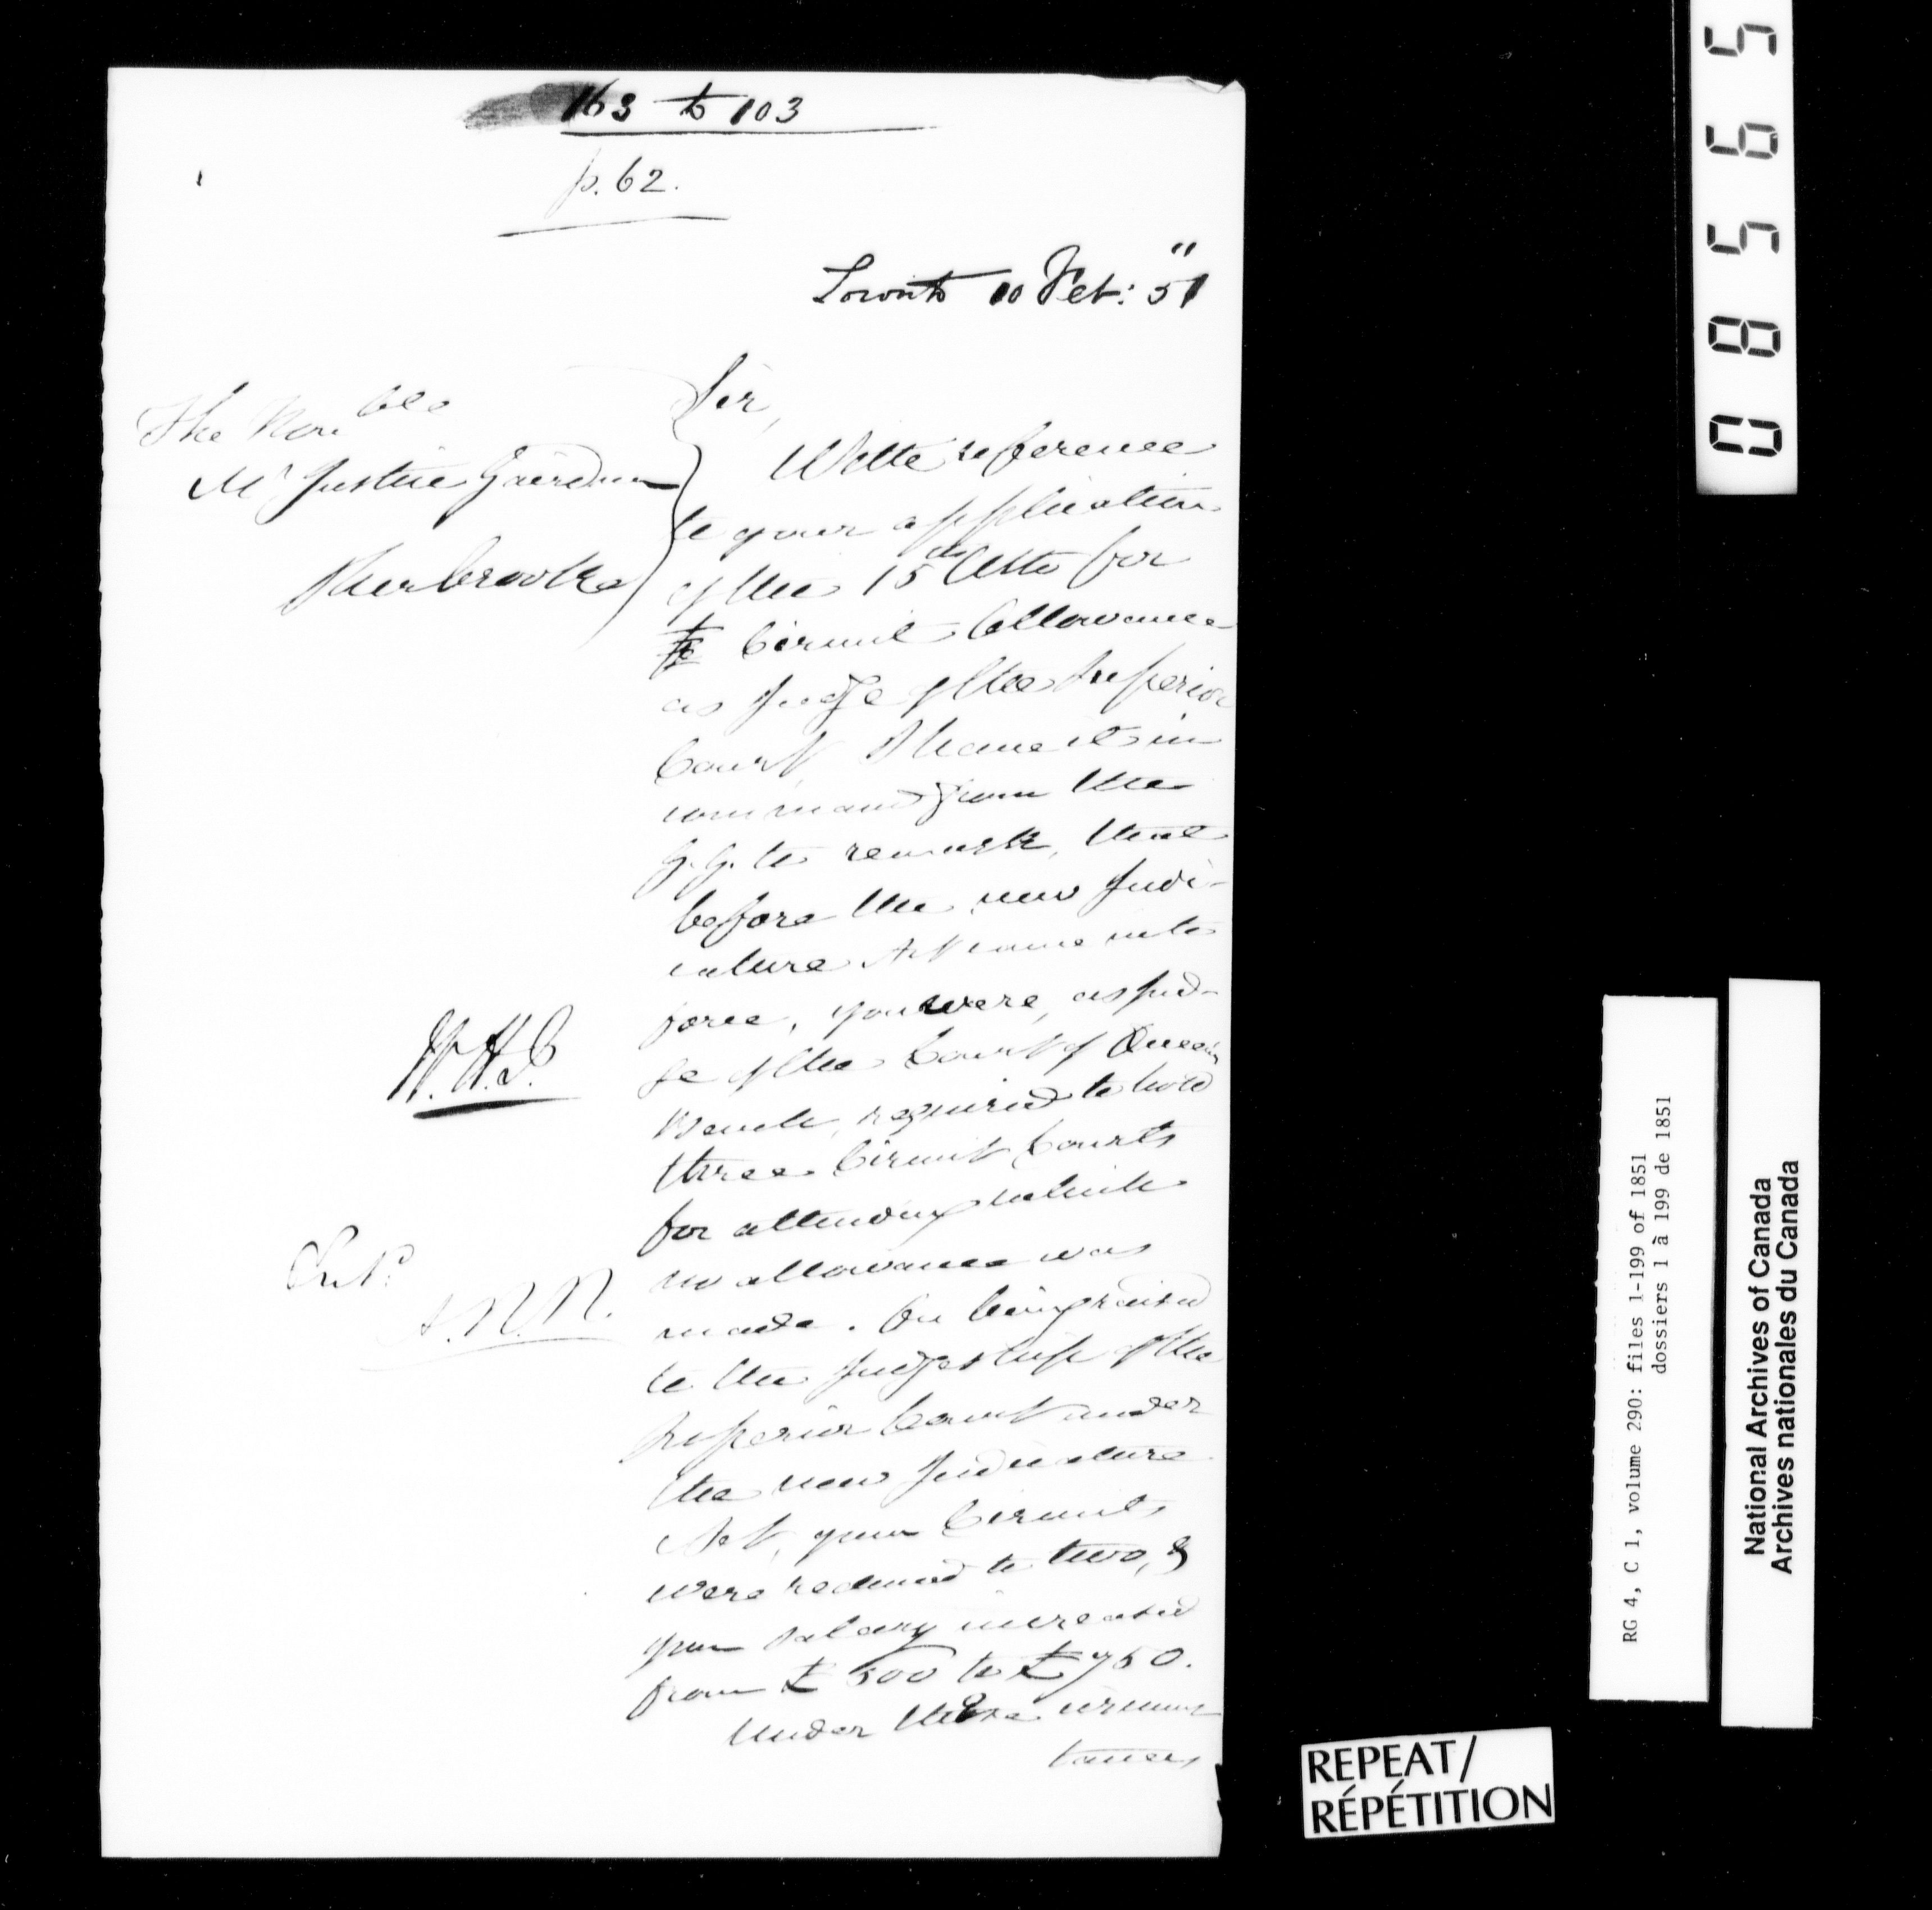 163 to 103
p. 62.
Toronto 10 Feb: 51
The Honble
Mr Justice Gairdner
Sherbrooke
Sir,
With reference
to your application
of the 15th Ulto for
Circuit Allowance
as Judge of the Superior
Court, I have it in
command from the
G. G. to remark, that
before the new Judi-
cature Act came into
force, you were, as Jud-
ge of the Court of Queen's
Bench, required to hold
three Circuit Courts
for attending which
no allowance was
made. On being raised
to the Judgeship of the
Superior Court under
the new Judicature
Act, your Circuits
were reduced to two, &
your salary increased
from £500 to £750.
Under these circums
tances,
Entd
REPEAT/
RÉPÉTITION
08565
RG 4, C 1, volume 290: files 1-199 of 1851
dossiers 1 à 199 de 1851
National Archives of Canada
Archives nationales du Canada